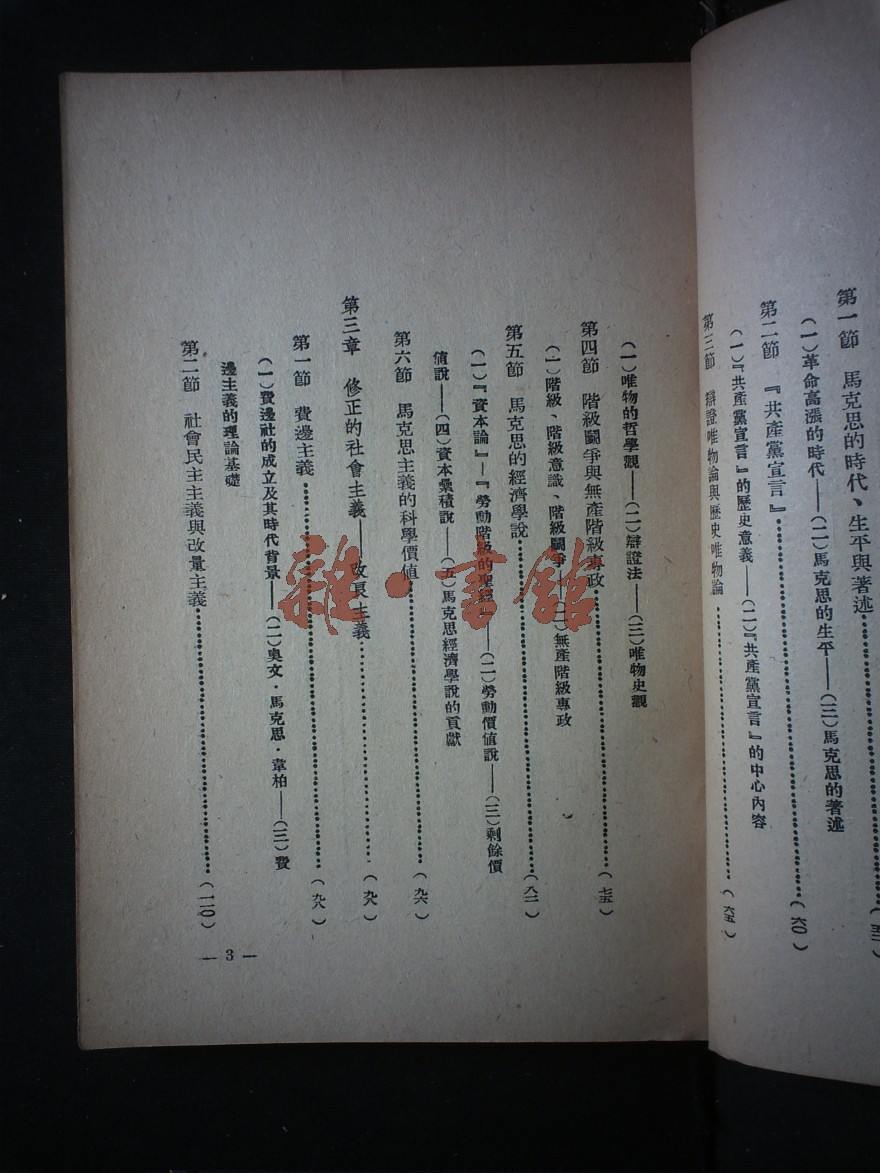 第一節　馬克思的時代、生平與著述……(五二)
(一)革命高漲的時代——(二)馬克思的生平——(三)馬克思的著述
第二節　『共產黨宣言』……(六〇)
(一)『共產黨宣言』的歷史意義——(二)『共產黨宣言』的中心內容
第三節　辯證唯物論與歷史唯物論……(六五)
(一)唯物的哲學觀——(二)辯證法——(三)唯物史觀
第四節　階級鬭爭與無產階級專政……(七五)
(一)階級、階級意識、階級鬭爭——(二)無產階級專政
第五節　馬克思的經濟學說……(八二)
(一)『資本論』—『勞動階級的聖經』——(二)勞動價値說——(三)剩餘價
値說——(四)資本纍積說——(五)馬克思經濟學說的貢獻
第六節　馬克思主義的科學價値……(九六)
第三章　修正的社會主義——改良主義……(九八)
第一節　費邊主義……(九八)
(一)費邊社的成立及其時代背景——(二)奧文・馬克思・韋柏——(三)費
邊主義的理論基礎
第二節　社會民主主義與改量主義……(一一〇)
— 3 —
雜・書館